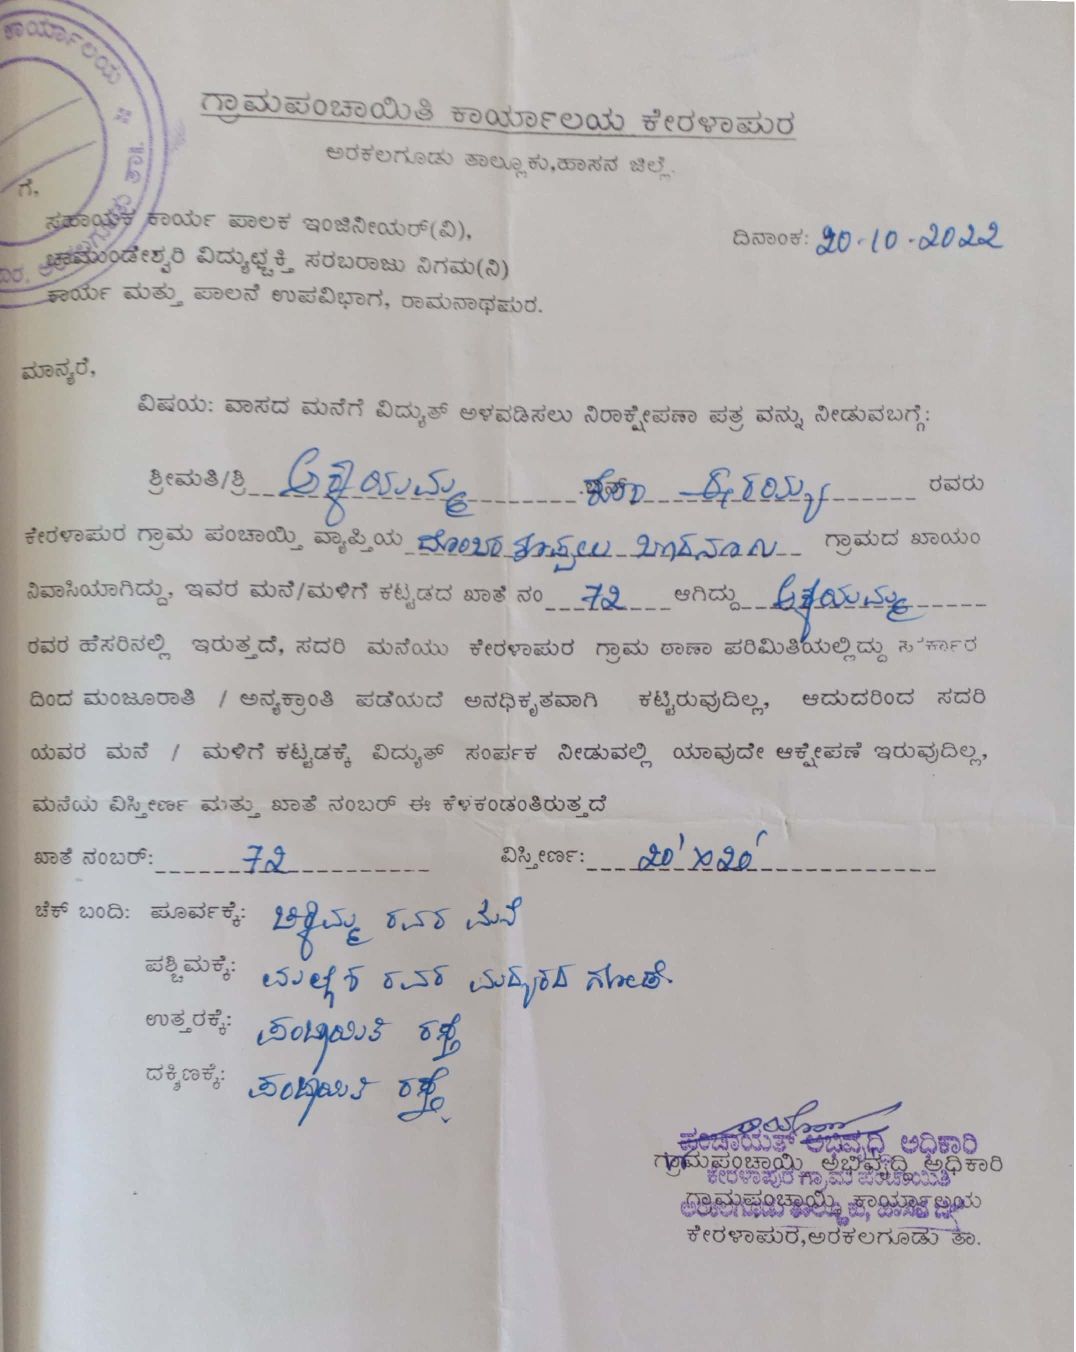 ಕಾರ್ಯಾಲಯ
ಗ್ರಾಮಪಂಚಾಯಿತಿ ಕಾರ್ಯಾಲಯ ಕೇರಳಾಪುರ
ಅರಕಲಗೂಡು ತಾಲ್ಲೂಕು,ಹಾಸನ ಜಿಲ್ಲೆ.
ಗೆ,
ಸಹಾಯಕ ಕಾರ್ಯ ಪಾಲಕ ಇಂಜಿನೀಯರ್(ವಿ),
ದಿನಾಂಕ: 20-10-2022
ಚಾಮುಂಡೇಶ್ವರಿ ವಿದ್ಯುಚ್ಛಕ್ತಿ ಸರಬರಾಜು ನಿಗಮ(ನಿ)
ಕಾರ್ಯ ಮತ್ತು ಪಾಲನೆ ಉಪವಿಭಾಗ, ರಾಮನಾಥಪುರ.
ಮಾನ್ಯರೆ,
ವಿಷಯ: ವಾಸದ ಮನೆಗೆ ವಿದ್ಯುತ್ ಅಳವಡಿಸಲು ನಿರಾಕ್ಷೇಪಣಾ ಪತ್ರ ವನ್ನು ನೀಡುವಬಗ್ಗೆ:
ಶ್ರೀಮತಿ/ಶ್ರಿ ಅಕ್ಕಯಮ್ಮ ಈರಯ್ಯ ರವರು
ಕೇರಳಾಪುರ ಗ್ರಾಮ ಪಂಚಾಯ್ತಿ ವ್ಯಾಪ್ತಿಯ ಗ್ರಾಮದ ಖಾಯಂ
ನಿವಾಸಿಯಾಗಿದ್ದು, ಇವರ ಮನೆ/ಮಳಿಗೆ ಕಟ್ಟಡದ ಖಾತೆ ನಂ 72 ಆಗಿದ್ದು ಅಕ್ಕಯಮ್ಮ
ರವರ ಹೆಸರಿನಲ್ಲಿ ಇರುತ್ತದೆ, ಸದರಿ ಮನೆಯು ಕೇರಳಾಪುರ ಗ್ರಾಮ ಠಾಣಾ ಪರಿಮಿತಿಯಲ್ಲಿದ್ದು ಸರ್ಕಾರ
ದಿಂದ ಮಂಜೂರಾತಿ / ಅನ್ಯಕ್ರಾಂತಿ ಪಡೆಯದೆ ಅನಧಿಕೃತವಾಗಿ ಕಟ್ಟಿರುವುದಿಲ್ಲ, ಆದುದರಿಂದ ಸದರಿ
ಯವರ ಮನೆ / ಮಳಿಗೆ ಕಟ್ಟಡಕ್ಕೆ ವಿದ್ಯುತ್ ಸಂರ್ಪಕ ನೀಡುವಲ್ಲಿ ಯಾವುದೇ ಆಕ್ಷೇಪಣೆ ಇರುವುದಿಲ್ಲ,
ಮನೆಯ ವಿಸ್ತೀರ್ಣ ಮತ್ತು ಖಾತೆ ನಂಬರ್ ಈ ಕೆಳಕಂಡಂತಿರುತ್ತದೆ
ಖಾತೆ ನಂಬರ್: 72 ವಿಸ್ತೀರ್ಣ: 20'x20'
ಚೆಕ್ ಬಂದಿ: ಪೂರ್ವಕ್ಕೆ: ಚಿಕ್ಕಮ್ಮ ರವರ ಮನೆ
ಪಶ್ಚಿಮಕ್ಕೆ: ಮಲ್ಲೇಶ ರವರ ಗೋಡೆ.
ಉತ್ತರಕ್ಕೆ: ಪಂಚಾಯಿತಿ ರಸ್ತೆ
ದಕ್ಷಿಣಕ್ಕೆ: ಪಂಚಾಯಿತಿ ರಸ್ತೆ.
ಪಂಚಾಯತ್ ಅಭಿವೃದ್ಧಿ ಅಧಿಕಾರಿ
ಗ್ರಾಮಪಂಚಾಯ್ತಿ ಅಭಿವೃದ್ಧಿ ಅಧಿಕಾರಿ
ಕೇರಳಾಪುರ ಗ್ರಾಮ ಪಂಚಾಯಿತಿ
ಗ್ರಾಮಪಂಚಾಯ್ತಿ ಕಾರ್ಯಾಲಯ
ಕೇರಳಾಪುರ,ಅರಕಲಗೂಡು ತಾ.